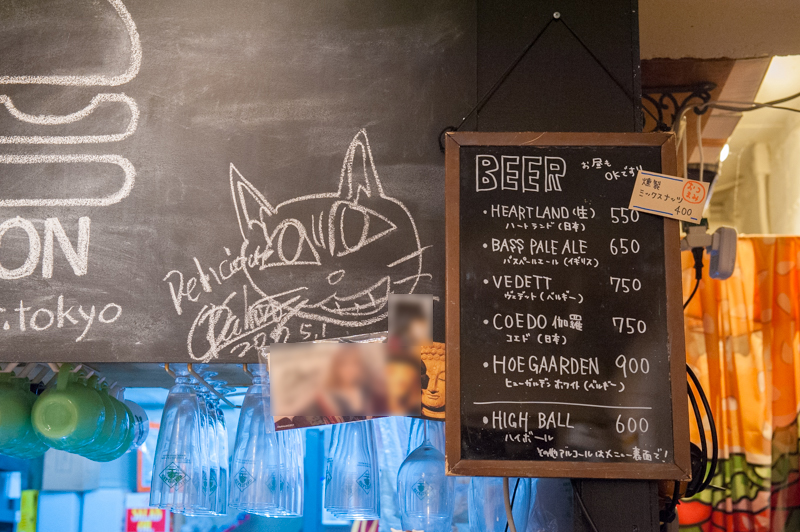 ON
r.tokyo
Delicious
BEER
お昼も
OKです!!
燻製
ミックスナッツ
400
・HEARTLAND(生) 550
ハートランド(日本)
・BASS PALE ALE 650
バスペールエール(イギリス)
・VEDETT 750
ヴェデット(ベルギー)
・COEDO 伽羅 750
コエド(日本)
・HOEGAARDEN 900
ヒューガルデンホワイト(ベルギー)
・HIGH BALL 600
ハイボール
その他アルコールはメニュー裏面で!